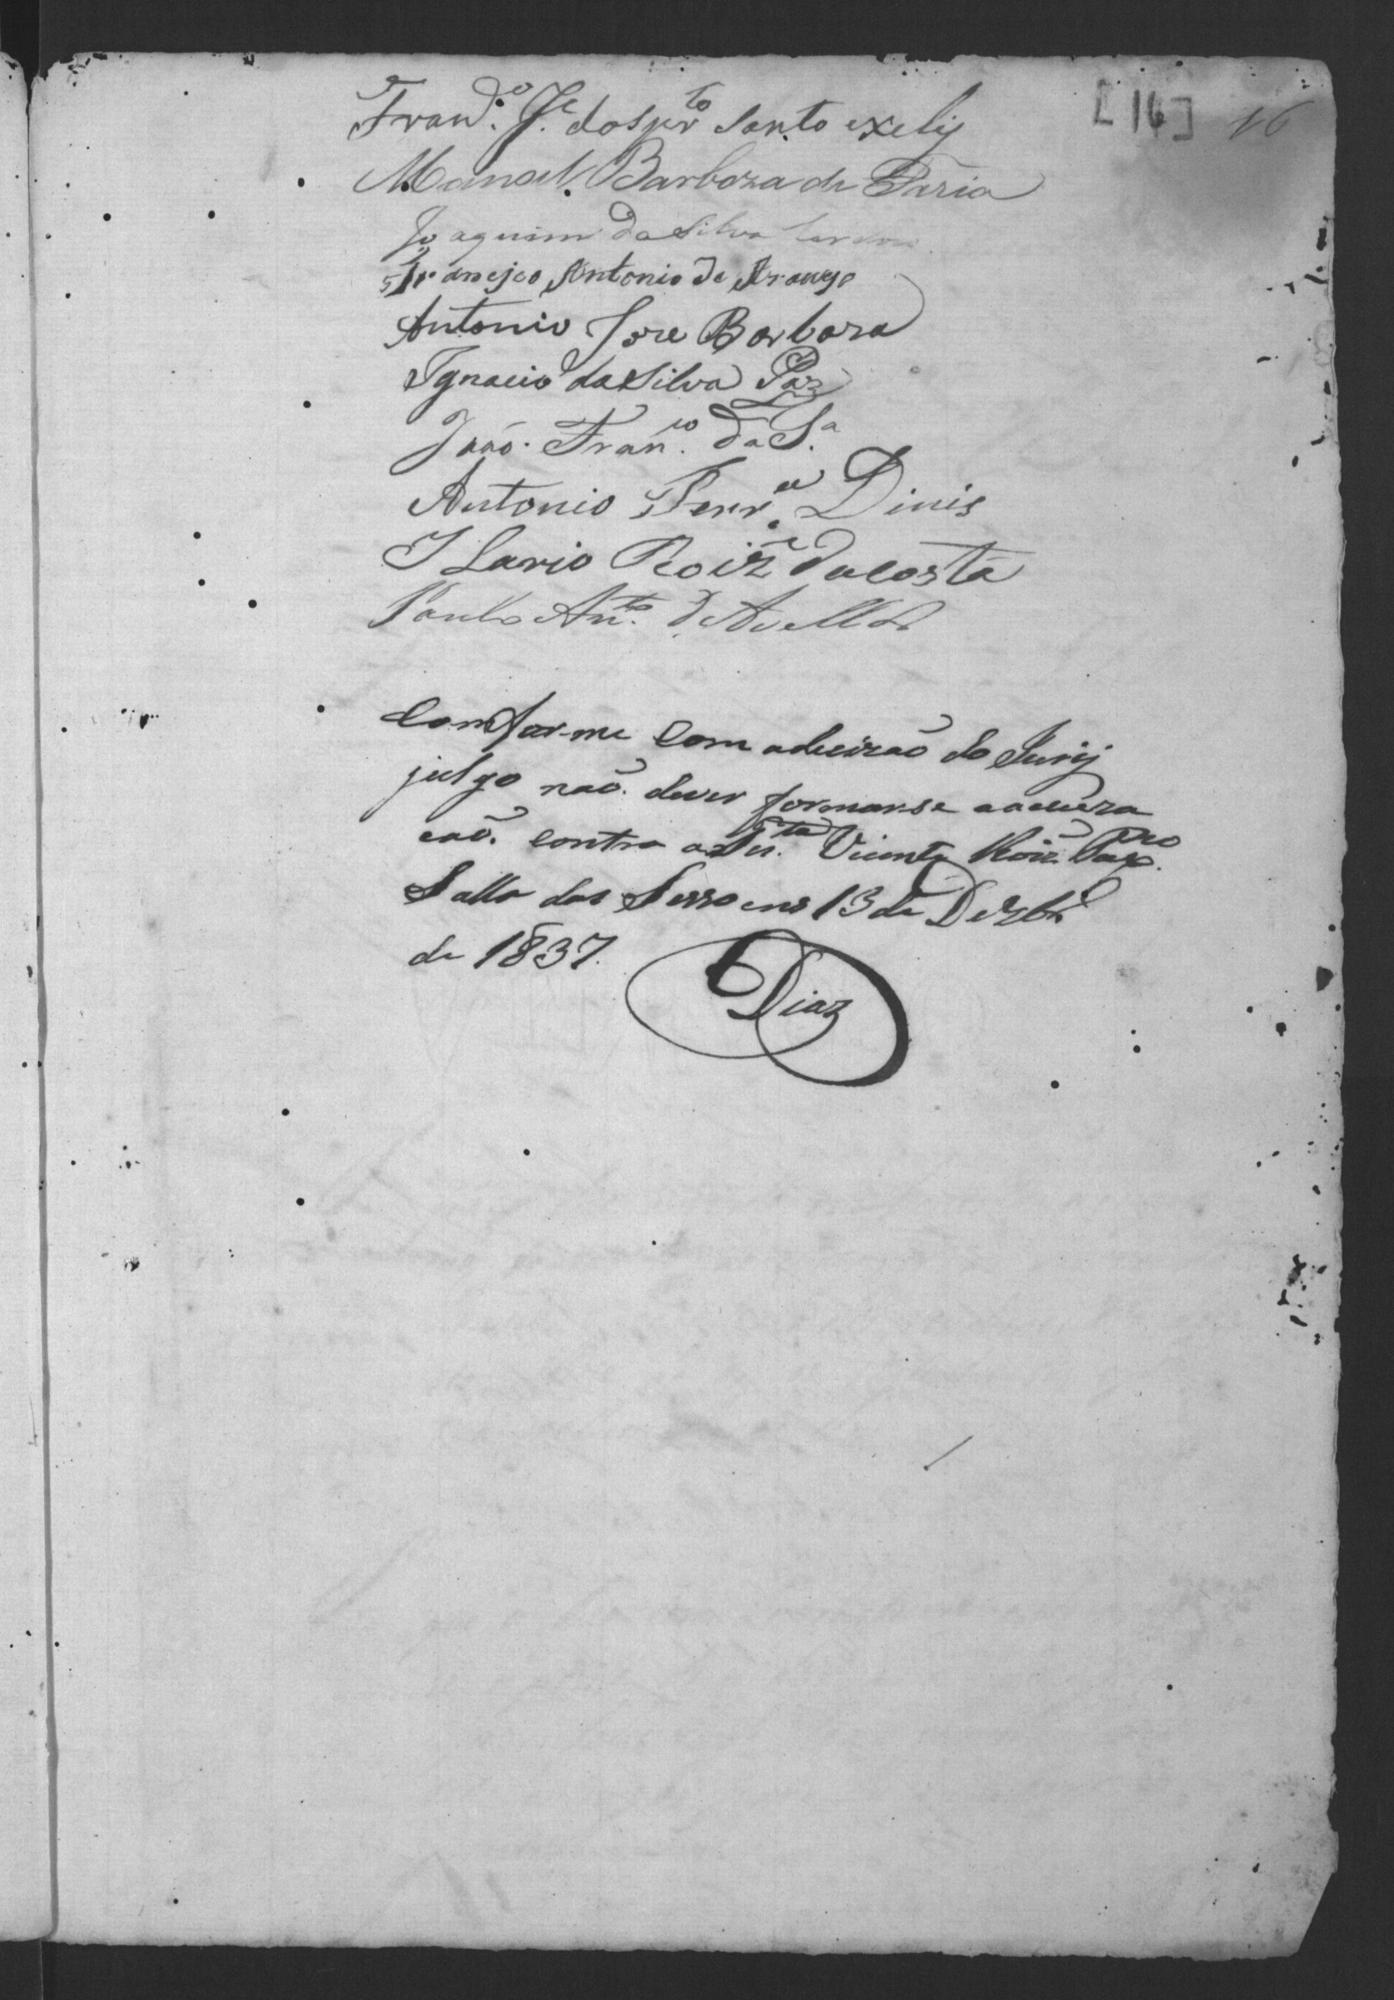 [16] 16
Fran.co J.e do Spr.to Santo
Manoel Barboza de Faria
Joaquim da Silva
Francisco Antonio de Araujo
Antonio Jose Barboza
Ignacio da Silva Paz
João Fran.co da S.a
Antonio Ferr.a Dinis
Ilario Roiz da Costa
Paulo An.to d'Avellar
Comforme Com adecizão do Jurij
julgo não dever formarse aacuza
cão contra a Vicente Roiz
Salla das Sessoens 13 de Dezbr
de 1837.
Diaz